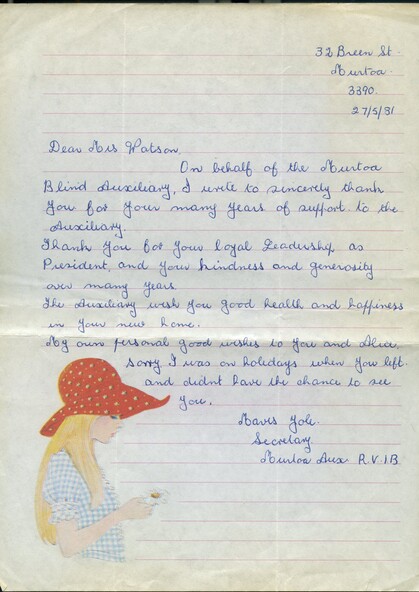 32 Breen St.
Murtoa.
3390.
27/5/81
Dear Mrs Watson,
On behalf of the Murtoa
Blind Auxiliary, I write to sincerely thank
you for your many years of support to the
Auxiliary.
Thank you for your loyal Leadership as
President, and your kindness and generosity
over many years.
The Auxiliary wish you good health and happiness
in your new home.
My own personal good wishes to you and Alice,
sorry I was on holidays when you left.
and didnt have the chance to see
you.
Mavis
Secretary
Murtoa Aux R.V.I.B.